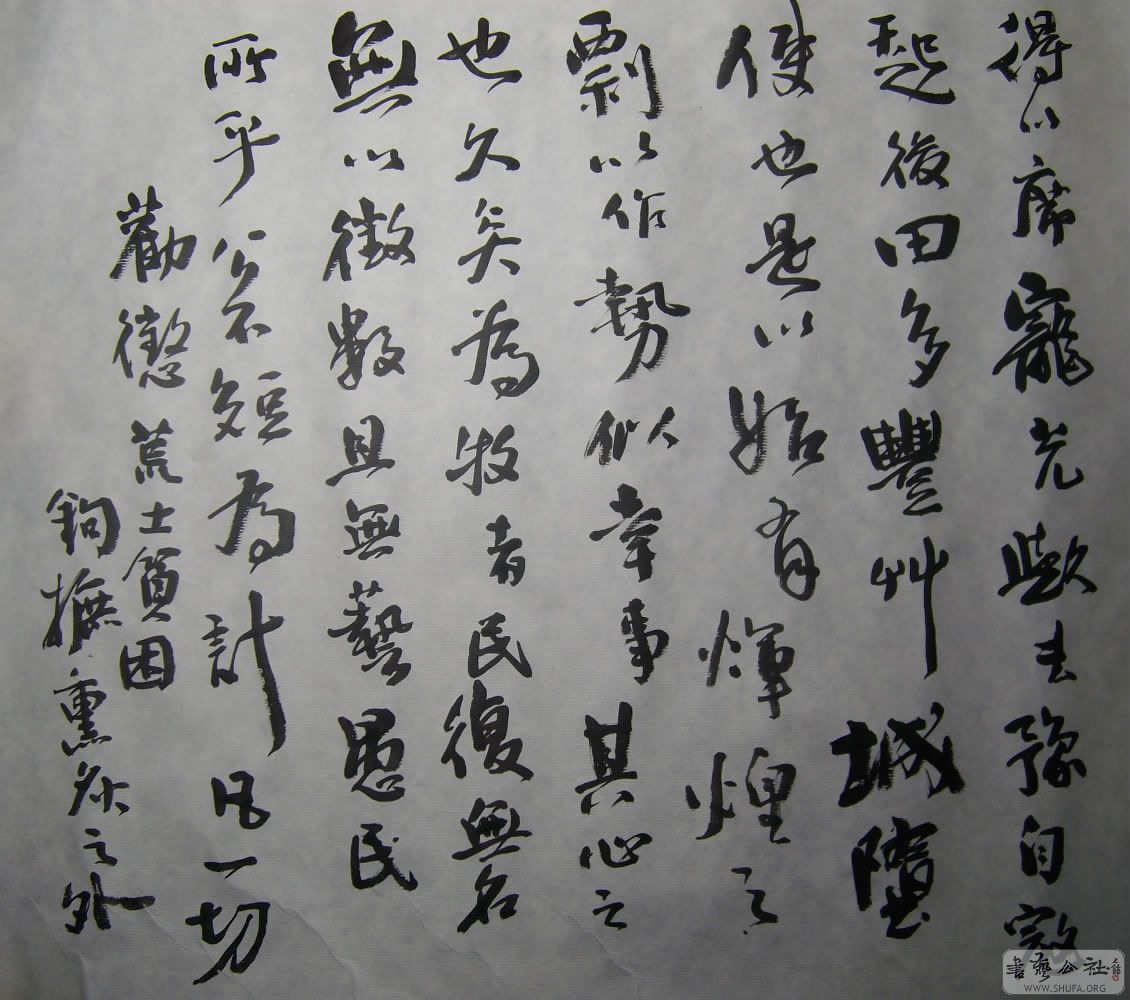 得以席寵光歟去豫自寇
起後田多豐艸城隍
使也是以始有煇煌之
剽以作勢似幸事其心之
也久矣為牧者民復無名
無以徵數且無藝愚民
所乎公不短為計凡一切
勸懲荒土貧困
鉤摭熏灼之外
書藝公社
WWW.SHUFA.ORG